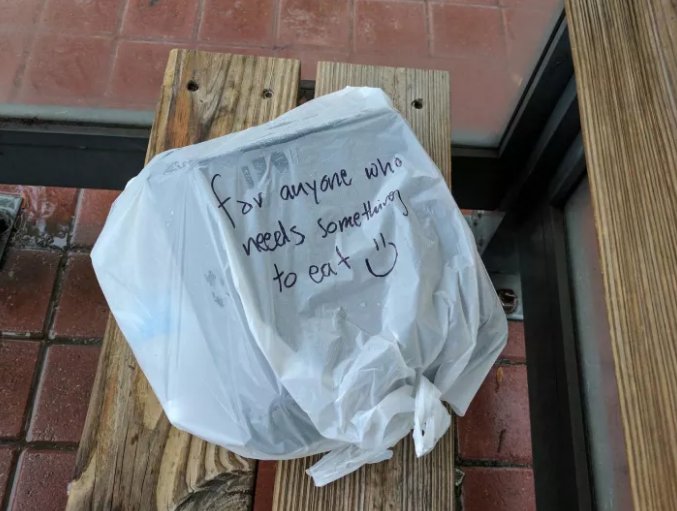 for anyone who
needs something
to eat :)